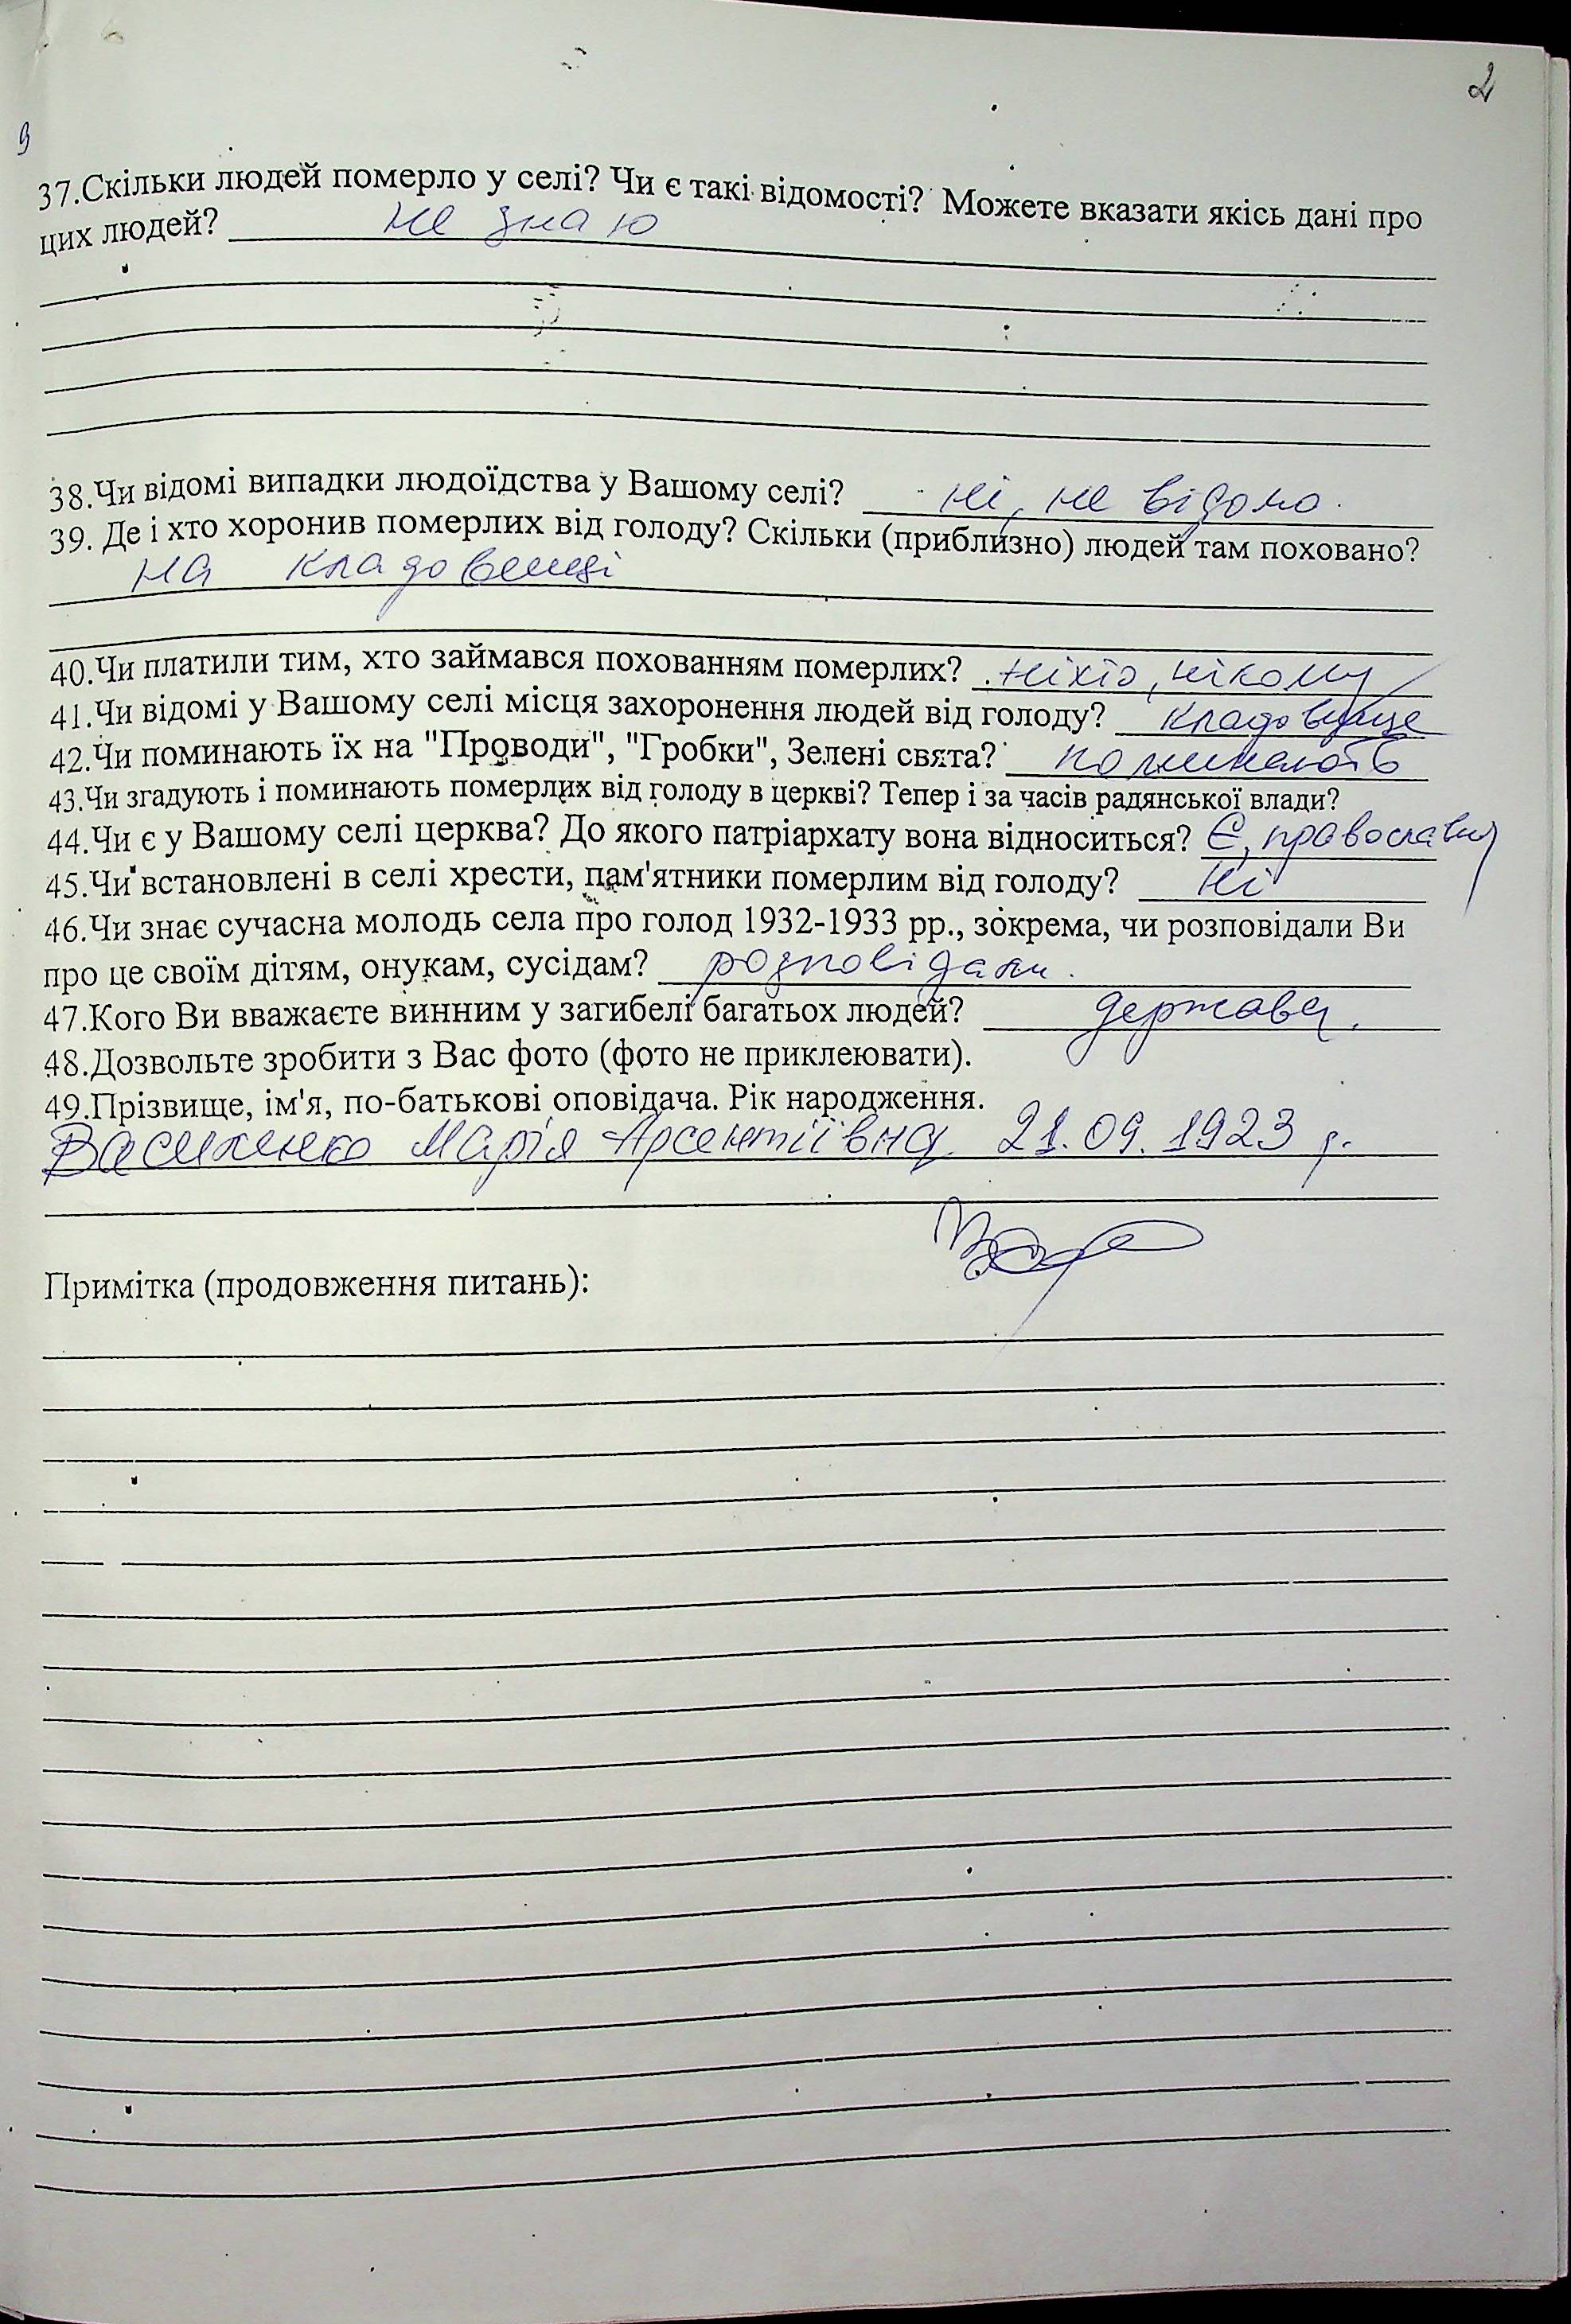 2
9
37.Скільки людей померло у селі? Чи є такі відомості? Можете вказати якісь дані про
цих людей? не знаю
38.Чи відомі випадки людоїдства у Вашому селі? ні, не відомо.
39. Де і хто хоронив померлих від голоду? Скільки (приблизно) людей там поховано?
на кладовищі
40.Чи платили тим, хто займався похованням померлих? ніхто, нікому
41.Чи відомі у Вашому селі місця захоронення людей від голоду? кладовище
42.Чи поминають їх на "Проводи", "Гробки", Зелені свята? поминають
43.Чи згадують і поминають померлих від голоду в церкві? Тепер і за часів радянської влади?
44.Чи є у Вашому селі церква? До якого патріархату вона відноситься? Є, православна
45.Чи встановлені в селі хрести, пам'ятники померлим від голоду? Ні
46.Чи знає сучасна молодь села про голод 1932-1933 рр., зокрема, чи розповідали Ви
про це своїм дітям, онукам, сусідам? розповідали.
47.Кого Ви вважаєте винним у загибелі багатьох людей? держава.
48.Дозвольте зробити з Вас фото (фото не приклеювати).
49.Прізвище, ім'я, по-батькові оповідача. Рік народження.
Василенко Марія Арсентіївна 21.09.1923 р.
Примітка (продовження питань):